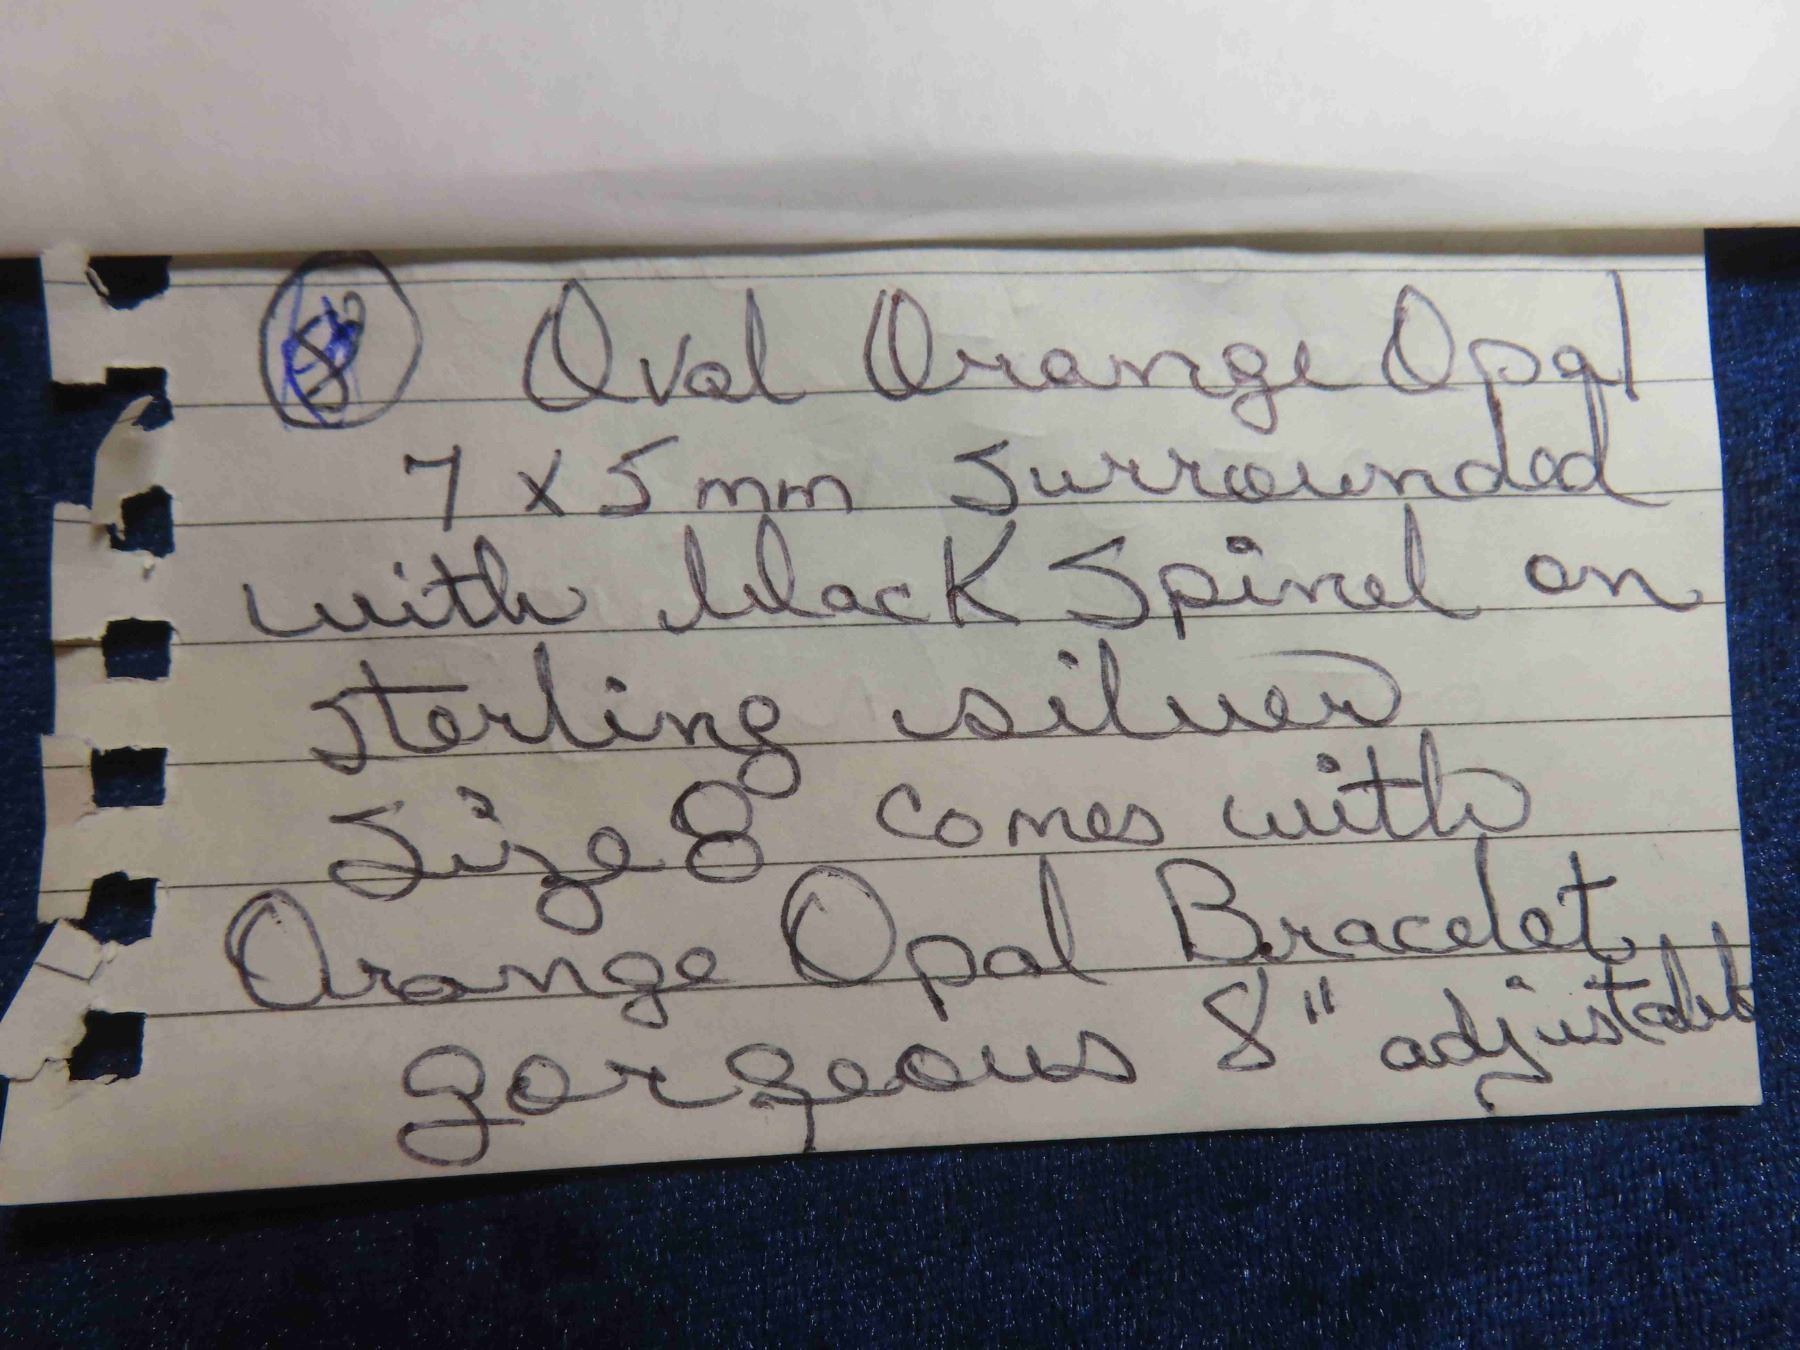 Oval Orange Opal
7 x 5 mm Surrounded
with black Spinel on
sterling silver
Size 8 comes with
Orange Opal Bracelet
gorgeous 8" adjustable